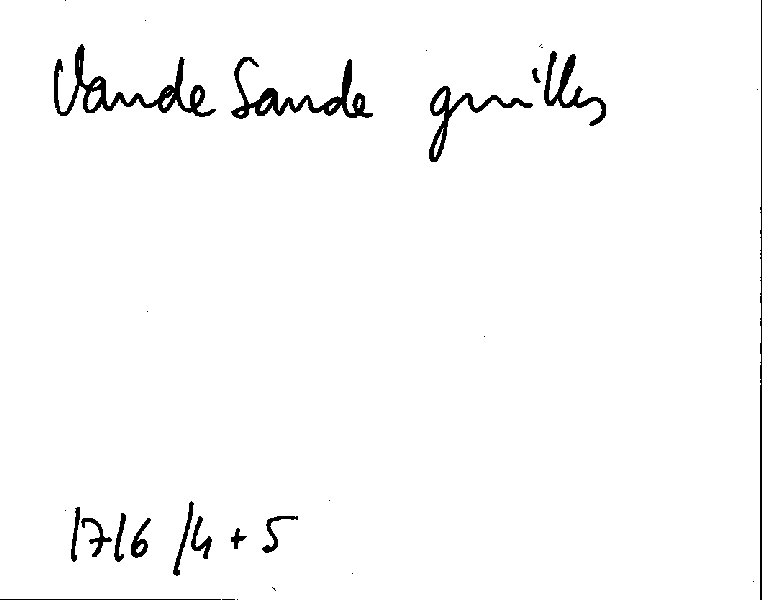 Vande Sande guilles
1716 /4 + 5